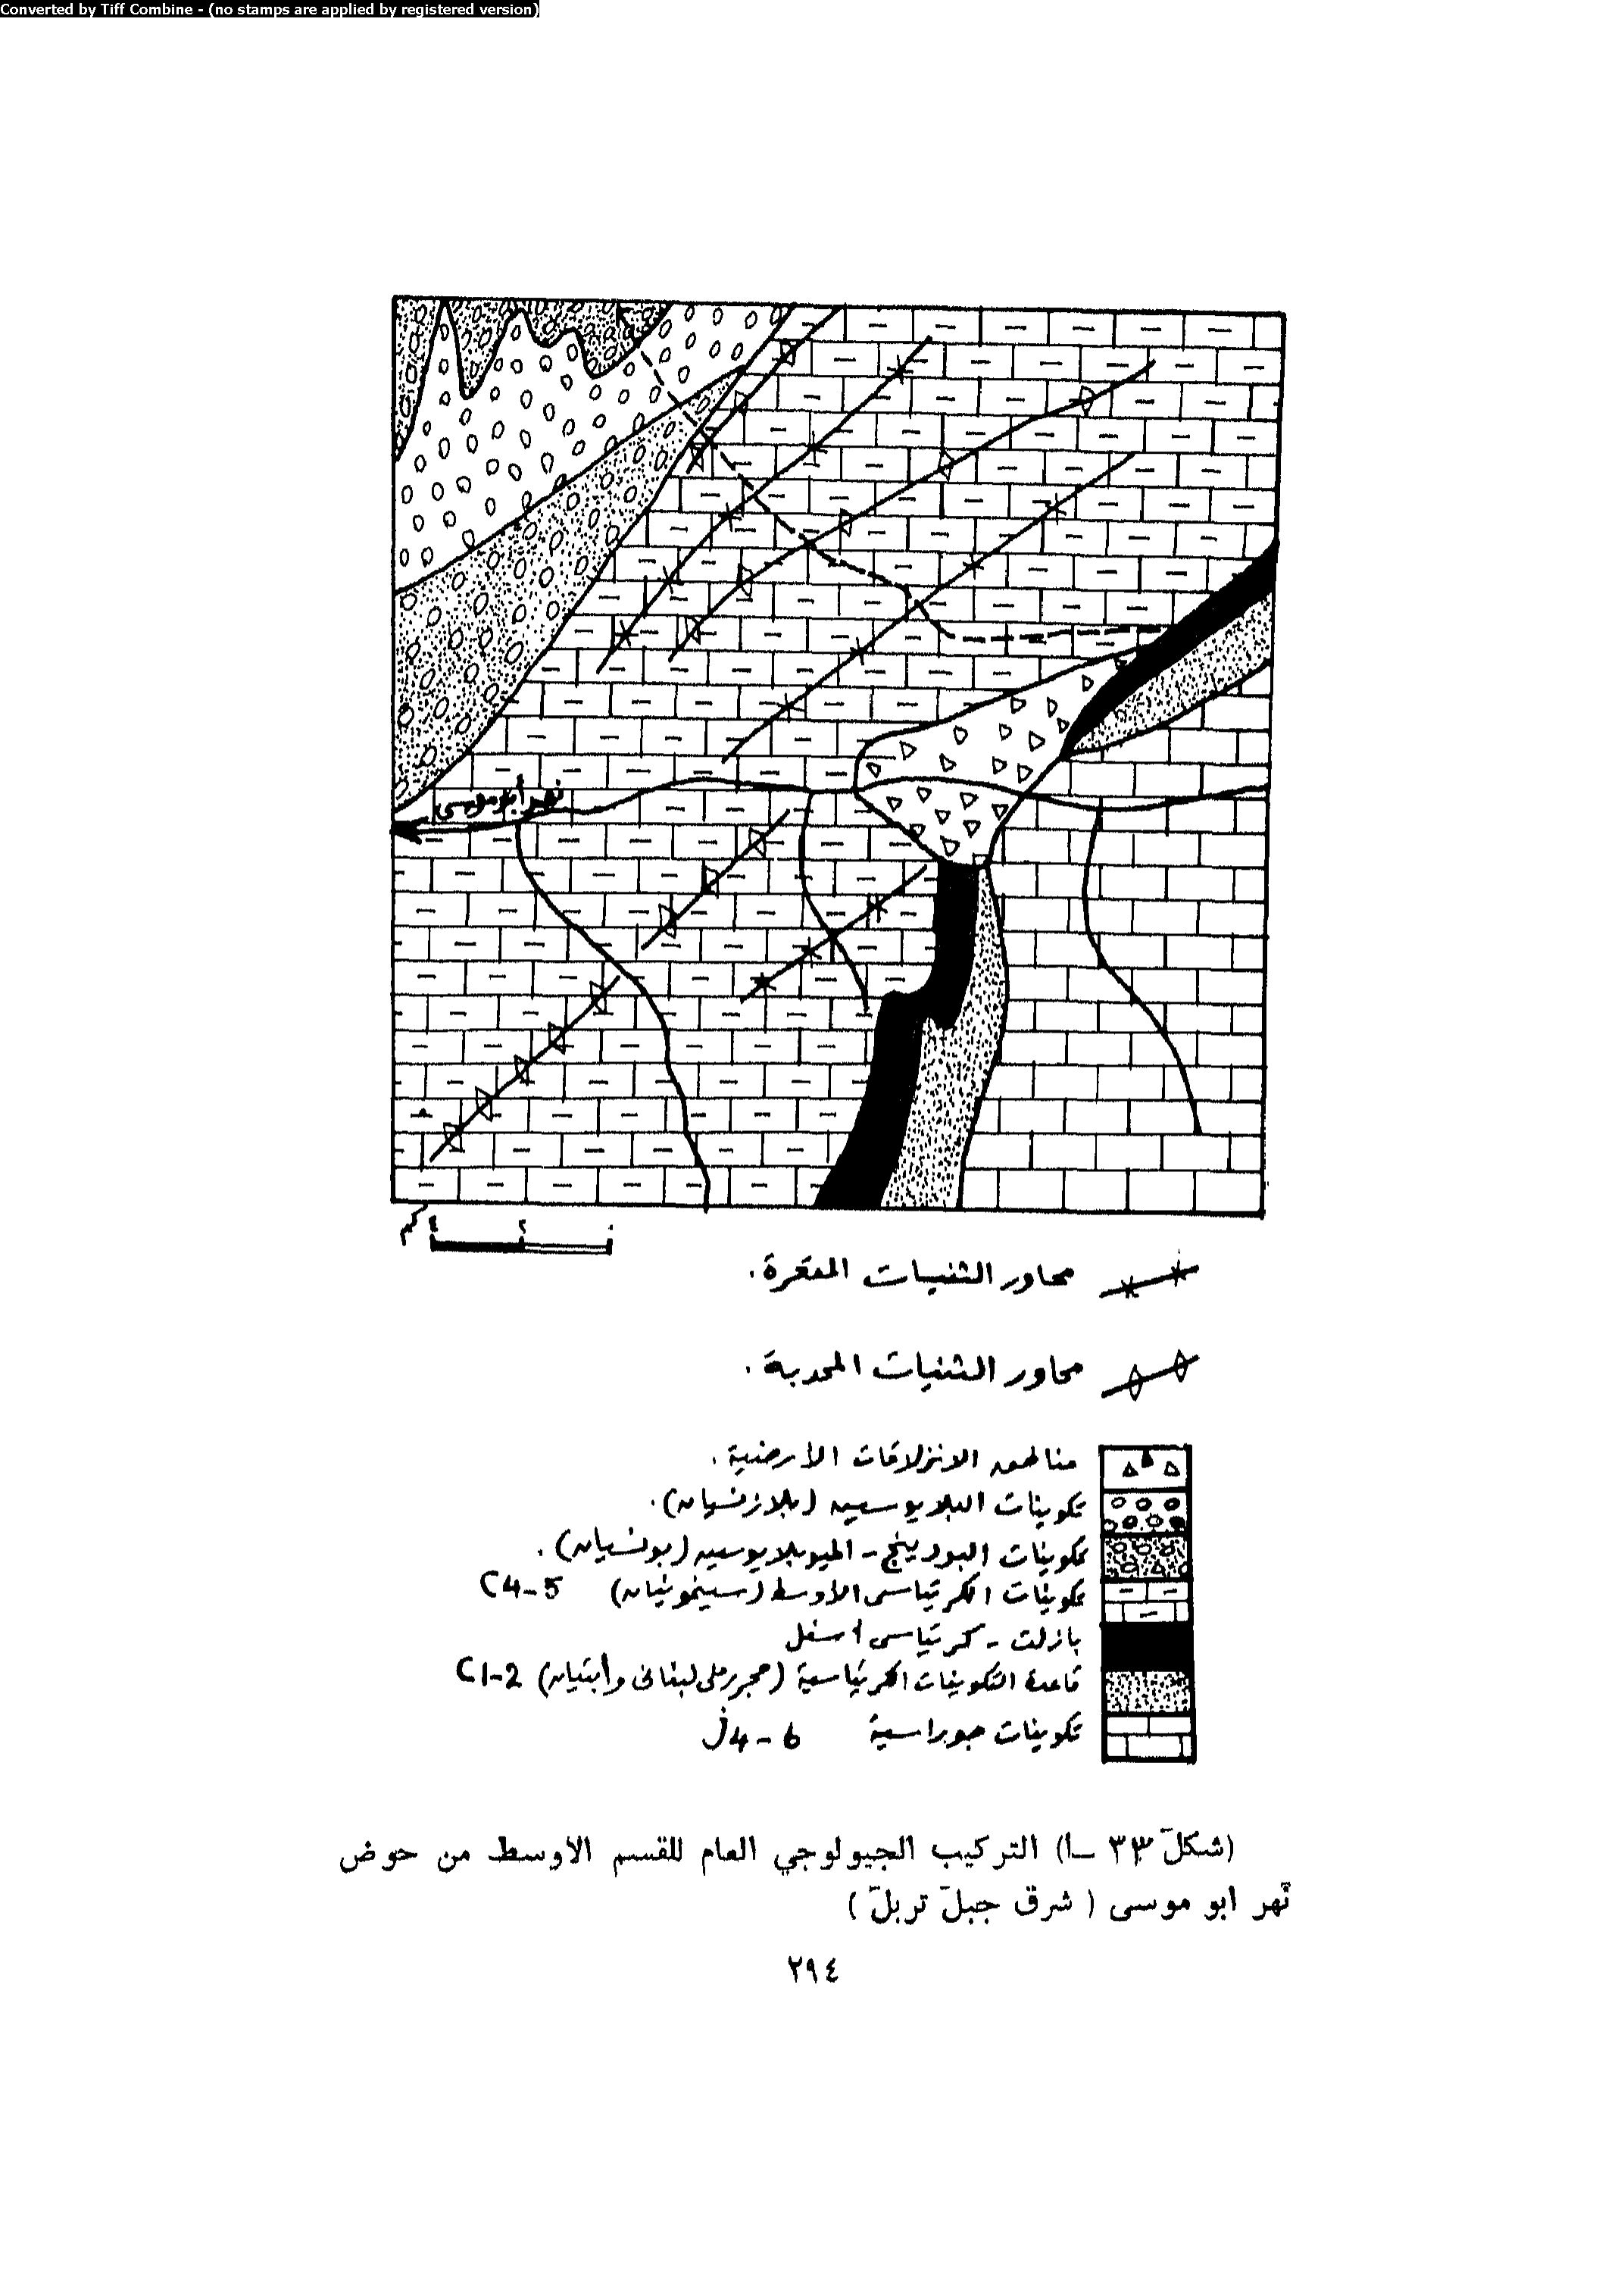 Converted by Tiff Combine - (no stamps are applied by registered version)
نهر أبو موسى
٠ ٢ ٤ كم
محاور الثنيات المقعرة.
محاور الثنيات المحدبة.
مناطق الانزلاقات الأرضية.
تكوينات البلايوسين (بلازنسيان).
تكوينات البودينج - الميوبلايوسين (بونسيان).
تكوينات الكرتياسي الأوسط (سينمونيان) C4-5
بازلت - كرتياسي أسفل
قاعدة التكوينات الكرتياسية (حجر رملي لبناني وأبتيان) C1-2
تكوينات جوراسية J4-6
(شكل ٣٣ ــ أ) التركيب الجيولوجي العام للقسم الاوسط من حوض
نهر ابو موسى (شرق جبل تربل)
٢٩٤